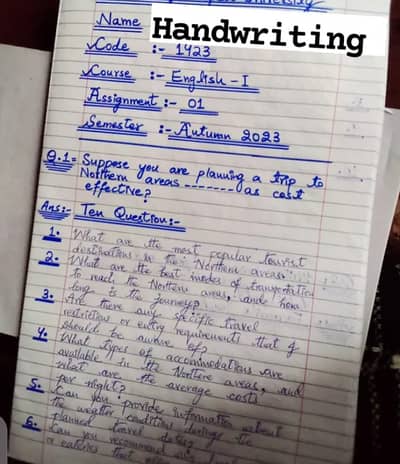 Name Handwriting
Code :- 1423
Course :- English - I
Assignment :- 01
Semester :- Autumn 2023
Q.1= Suppose you are planning a trip to
Nothern areas ------- as cost
effective?
Ans:- Ten Question:-
1. What are the most popular tourist
destinations in the Northern areas
2. What are the best modes of transportation
to reach the Northern areas, and how
long is the journey?
3. Are there any specific travel
restriction or entry requirements that I
should be aware of?
4. What types of accommodations are
available in the Northern areas, and
what are the average costs
per night?
5. Can you provide information about
the weather condition during the
planned travel dates?
6. Can you recommend any
or eateries that